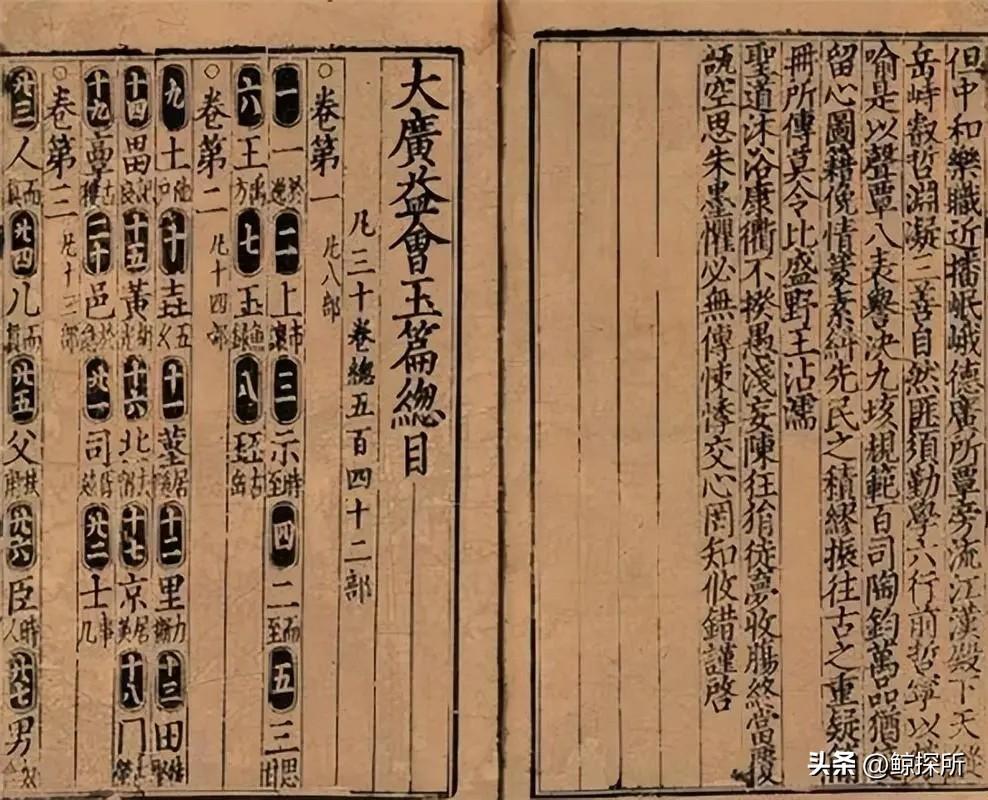 但中和樂職近播岷峨德廣所覃旁流江漢殿下天縱
岳峙叡哲淵凝三善自然匪須勤學六行前哲寧以
喻是以聲覃八表譽決九垓規範百司陶鈞萬品猶
留心圖籍俛情篆素糾先民之積繆振往古之重疑
冊所傳莫令比盛野王沾濡
聖道沐浴康衢不揆愚淺妄陳狂狷徒夢收腸終當覆
瓿空思朱墨懼必無傳悚悸交心罔知攸錯謹啓
大廣益會玉篇總目
凡三十卷總五百四十二部
○卷第一 凡八部
一 一 於逸 二 上 市讓 三 示 時至 四 二 而至 五 三 思甘
六 王 禹方 七 玉 魚録 八 玨 古岳
○卷第二 凡十四部
九 土 十 垚 五幺 十一 堇 居 十二 里 力 十三 田
十四 畕 良 十五 黃 胡光 十六 北 十七 京 居英 十八 冂
十九 𩫏 古穫 二十 邑 於急 廿一 司 廿二 士 事几
○卷第三 凡十三部
廿三 人 而真 廿四 儿 而真 廿五 父 扶甫 廿六 臣 時人 廿七 男
头条 @鲸探所